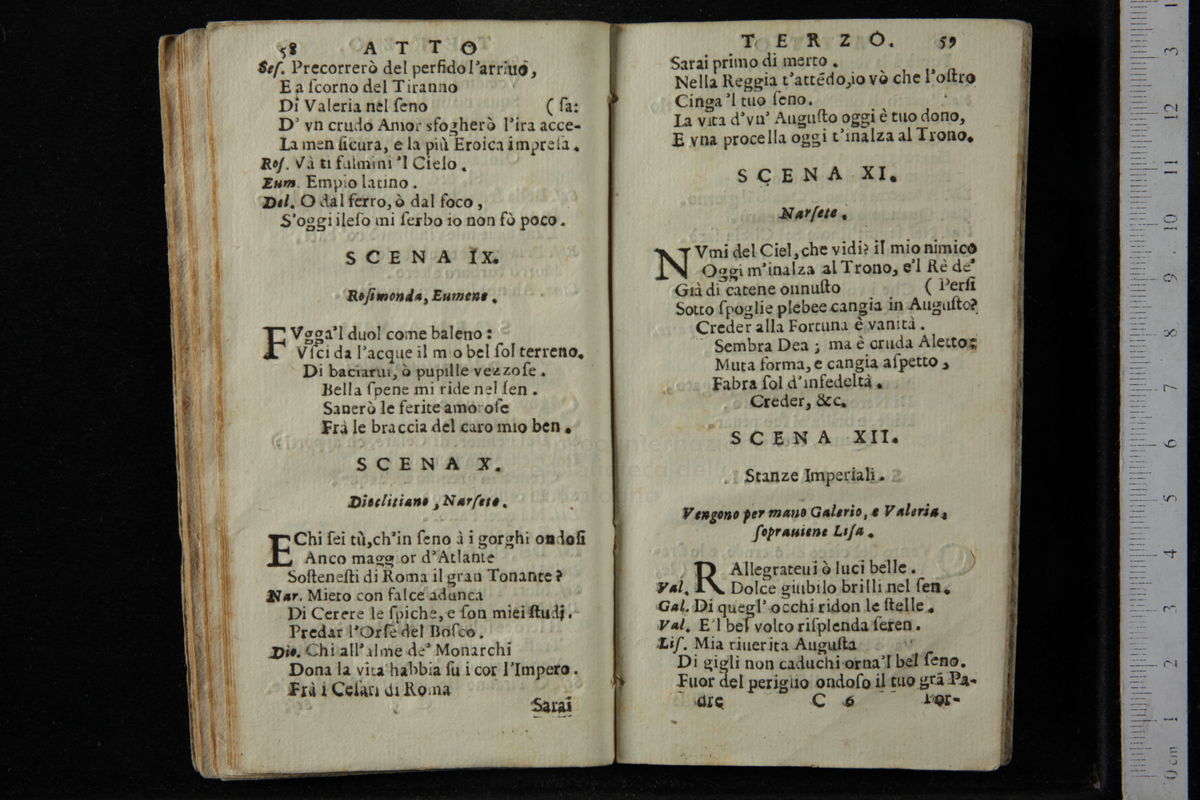 58 ATTO
Seſ. Precorrerò del perfido l'arriuo,
E a ſcorno del Tiranno
Di Valeria nel ſeno (ſa:
D' vn crudo Amor sfogherò l'ira acce-
La men ſicura, e la più Eroica impreſa.
Roſ. Và ti fulmini 'l Cielo.
Eum. Empio latino.
Del. O dal ferro, ò dal foco,
S'oggi ileſo mi ſerbo io non fò poco.
SCENA IX.
Roſimonda, Eumene.
FVgga'l duol come baleno:
Vſci da l'acque il mio bel ſol terreno.
Di baciarui, ò pupille vezzoſe.
Bella ſpene mi ride nel ſen.
Sanerò le ferite amoroſe
Frà le braccia del caro mio ben.
SCENA X.
Dioclitiano, Narſete.
EChi ſei tù, ch'in ſeno à i gorghi ondoſi
Anco magg or d'Atlante
Soſteneſti di Roma il gran Tonante?
Nar. Mieto con falce adunca
Di Cerere le ſpiche, e ſon miei ſtudj.
Predar l'Orſe del Boſco.
Dio. Chi all'alme de' Monarchi
Dona la vita habbia ſu i cor l'Impero.
Frà i Ceſari di Roma
Sarai
TERZO. 59
Sarai primo di merto.
Nella Reggia t'attẽdo, io vò che l'oſtro
Cinga 'l tuo ſeno.
La vita d'vn' Auguſto oggi è tuo dono,
E vna procella oggi t'inalza al Trono.
SCENA XI.
Narſete.
NVmi del Ciel, che vidi? il mio nimico
Oggi m'inalza al Trono, e'l Rè de'
Già di catene onnuſto (Perſi
Sotto ſpoglie plebee cangia in Auguſto?
Creder alla Fortuna è vanità.
Sembra Dea; ma è cruda Aletto:
Muta forma, e cangia aſpetto,
Fabra ſol d'infedeltà.
Creder, &c.
SCENA XII.
Stanze Imperiali.
Vengono per mano Galerio, e Valeria,
ſoprauiene Liſa.
RAllegrateui ò luci belle.
Val. Dolce giubilo brilli nel ſen.
Gal. Di quegl' occhi ridon le ſtelle.
Val. E'l bel volto riſplenda ſeren.
Liſ. Mia riuerita Auguſta
Di gigli non caduchi orna'l bel ſeno.
Fuor del periglio ondoſo il tuo grã Pa-
dre C 6 Tor-